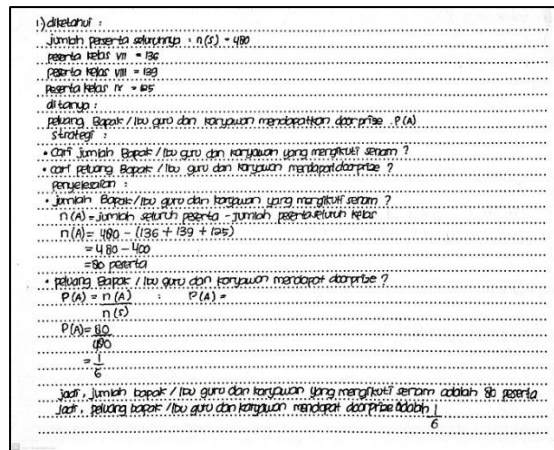 1) diketahui :
jumlah peserta seluruhnya : n(s) = 480
peserta kelas VII = 136
peserta kelas VIII = 139
peserta kelas IX = 125
ditanya :
peluang Bapak / Ibu guru dan karyawan mendapatkan doorprize . P(A)
strategi :
• cari jumlah Bapak / Ibu guru dan karyawan yang mengikuti senam ?
• cari peluang Bapak / Ibu guru dan karyawan mendapat doorprize ?
penyelesaian :
• jumlah Bapak / Ibu guru dan karyawan yang mengikuti senam ?
n(A) = jumlah seluruh peserta - jumlah peserta seluruh kelas
n(A) = 480 - (136 + 139 + 125)
= 480 - 400
= 80 peserta
• peluang Bapak / Ibu guru dan karyawan mendapat doorprize ?
P(A) = n(A) : P(A) =
n(s)
P(A) = 80
480
= 1
6
jadi, jumlah bapak / ibu guru dan karyawan yang mengikuti senam adalah 80 peserta
jadi, peluang bapak / ibu guru dan karyawan mendapat doorprize adalah 1
6